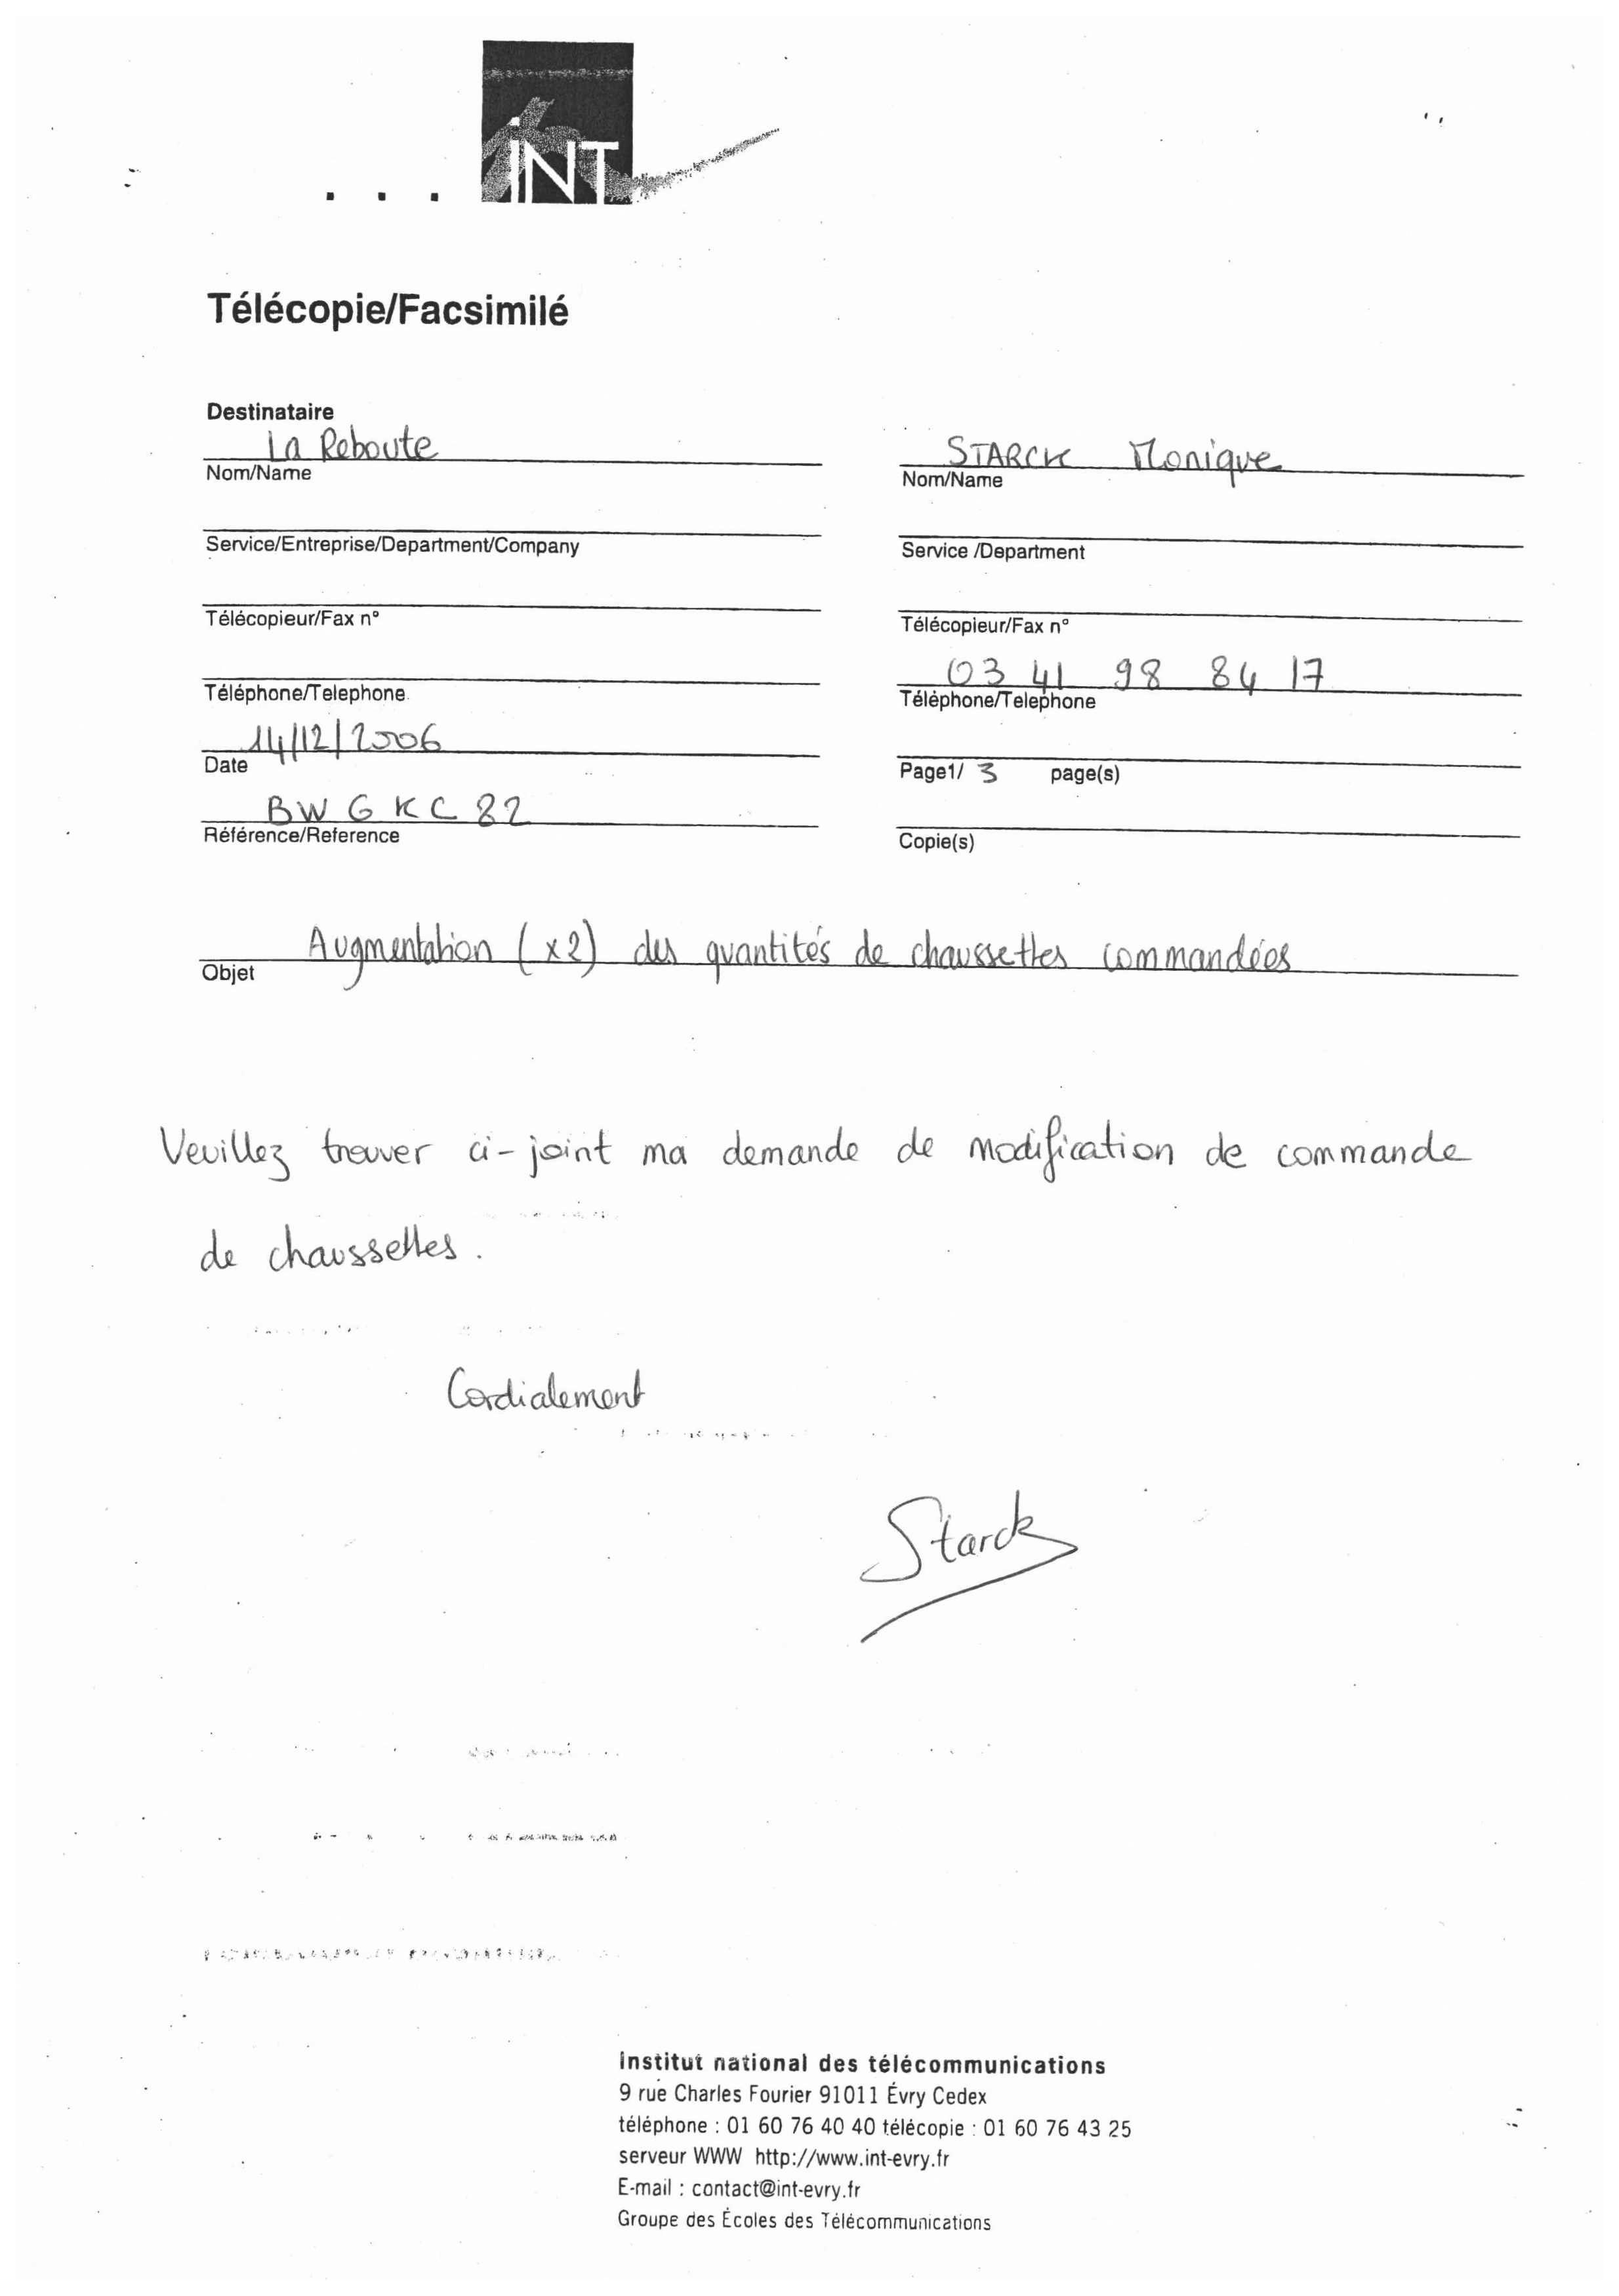 iNT
Télécopie/Facsimilé
Destinataire
La Reboute
Nom/Name
Service/Entreprise/Department/Company
Télécopieur/Fax n°
Téléphone/Telephone
14/12/2006
Date
BWGKC82
Référence/Reference
STARCK Monique
Nom/Name
Service /Department
Télécopieur/Fax n°
03 41 98 84 17
Téléphone/Telephone
Page1/ 3 page(s)
Copie(s)
Augmentation (x2) des quantités de chaussettes commandées
Objet
Veuillez trouver ci-joint ma demande de modification de commande
de chaussettes.
Cordialement
Starck
institut national des télécommunications
9 rue Charles Fourier 91011 Évry Cedex
téléphone : 01 60 76 40 40 télécopie : 01 60 76 43 25
serveur WWW http://www.int-evry.fr
E-mail : contact@int-evry.fr
Groupe des Écoles des Télécommunications